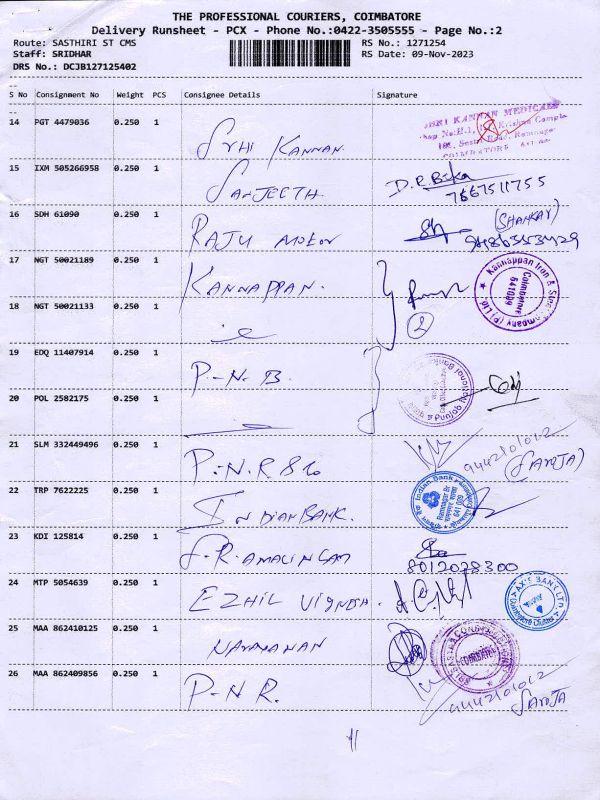 THE PROFESSIONAL COURIERS, COIMBATORE
Delivery Runsheet - PCX - Phone No.:0422-3505555 - Page No.:2
Route: SASTHIRI ST CMS
RS No.: 1271254
Staff: SRIDHAR
RS Date: 09-Nov-2023
DRS No.: DCJB127125402
S No Consignment No Weight PCS Consignee Details Signature
14 PGT 4479036 0.250 1
SRI KANNAN MEDICALS
SRHI KANNAN
15 IXM 505266958 0.250 1
SANJEETH
7667511755
16 SDH 61090 0.250 1
RAJU MOTOR
(SHANKAR)
9486553429
17 NGT 50021189 0.250 1
KANNAPPAN.
Kannappan Iron & Steel Company (P) Ltd.
Coimbatore
641009
18 NGT 50021133 0.250 1
2
19 EDQ 11407914 0.250 1
P.N.B.
Punjab National Bank
20 POL 2582175 0.250 1
21 SLM 332449496 0.250 1
P.N.R & Co
9442101012
(SAROJA)
22 TRP 7622225 0.250 1
INDIANBANK.
Indian Bank
Ramnagar Br
641 009
23 KDI 125814 0.250 1
S.RAMALINGAM
8012028300
24 MTP 5054639 0.250 1
EZHIL VIGNESH.
AXIS BANK LTD.
Coimbatore
25 MAA 862410125 0.250 1
NARAYANAN
26 MAA 862409856 0.250 1
P.N.R.
9442101012
SAROJA